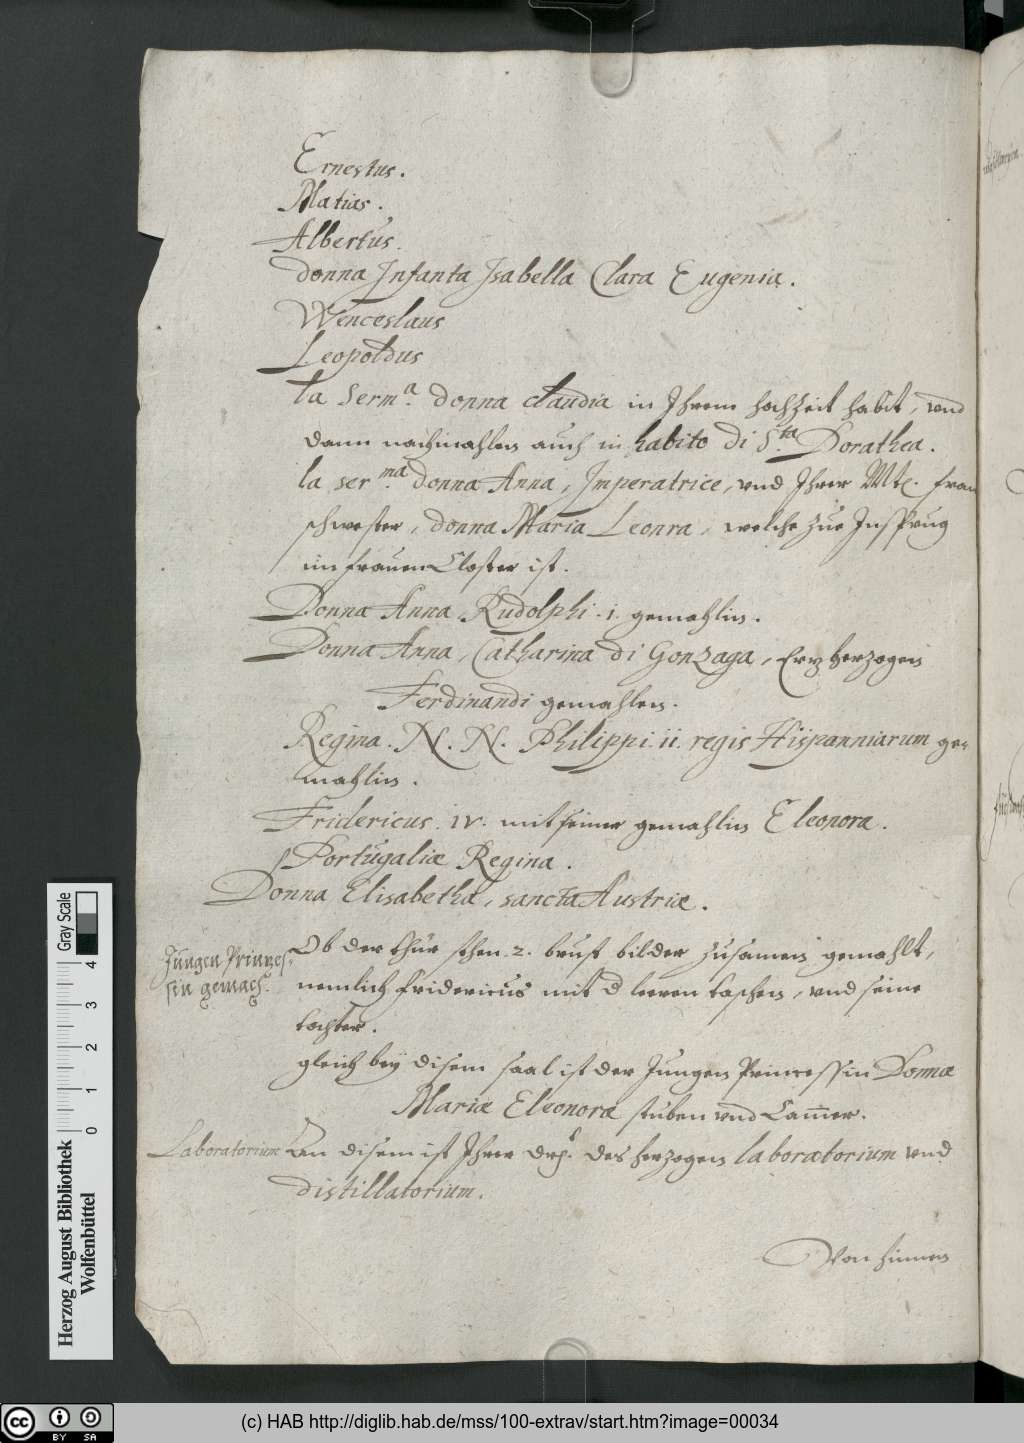 Ernestus.
Matias.
Albertus.
donna Infanta Isabella Clara Eugenia.
Wenceslaus
Leopoldus
la Serm.a donna claudia in Ihrem hochzeit habit, vnd
dann nachmahlen auch in habito di S.ta Dorathea.
la ser.ma donna Anna, Imperatrice, vnd Ihrer Mt. fraw
schwester, donna Maria Leonra, welche zue Insprug
im frauen Closter ist.
Donna Anna Rudolphi .i. gemahlin.
Donna Anna, Catharina di Gonzaga, Erzherzogen
Ferdinandi gemahlen.
Regina. N. N. Philippi. ii. regis Hispanniarum ge-
mahlin.
Fridericus. IV. mit seiner gemahlin Eleonora.
Portugaliæ Regina.
Donna Elisabetha, sancta Austriæ.
Jungen Prinzes-
sin gemach.
Ob der thür sthen .2. brust bilder zusamen gemahlt,
nemlich fridericus mit d leeren taschen, vnd seine
tochter.
gleich bey disem saal ist der Jungen Princessin Donnæ
Mariæ Eleonoræ stuben vnd Camer.
Laboratorium
An disem ist Ihrer drh. des herzogen laboratorium vnd
distillatorium.
Von hinnen
Herzog August Bibliothek
Wolfenbüttel
Gray Scale
0 1 2 3 4
cc BY SA
(c) HAB http://diglib.hab.de/mss/100-extrav/start.htm?image=00034